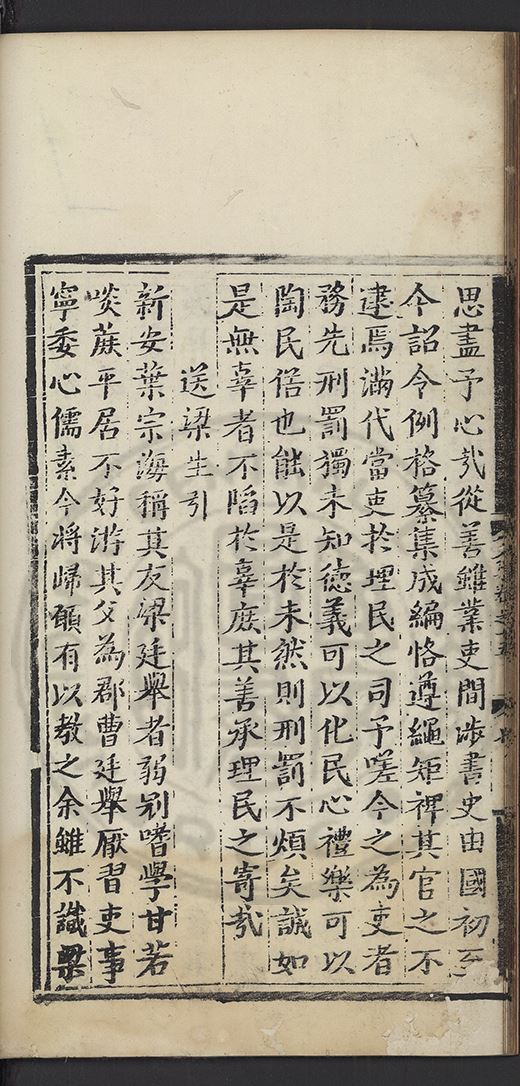 思盡予心㢤從善雖業吏間涉書史由國初至
今詔令例格纂集成編恪遵繩矩裨其官之不
逮焉滿代當吏扵理民之司予嗟今之為吏者
務先刑罰獨未知徳義可以化民心禮樂可以
陶民俗也能以是扵未然則刑罰不煩矣誠如
是無辜者不陷扵辜庶其善承理民之寄㢤
送梁生引
新安葉宗海稱其友梁廷舉者弱别嗜學甘若
啖蔗平居不好游其父為郡曹廷舉厭習吏事
寧委心儒素今將歸願有以教之余雖不識梁